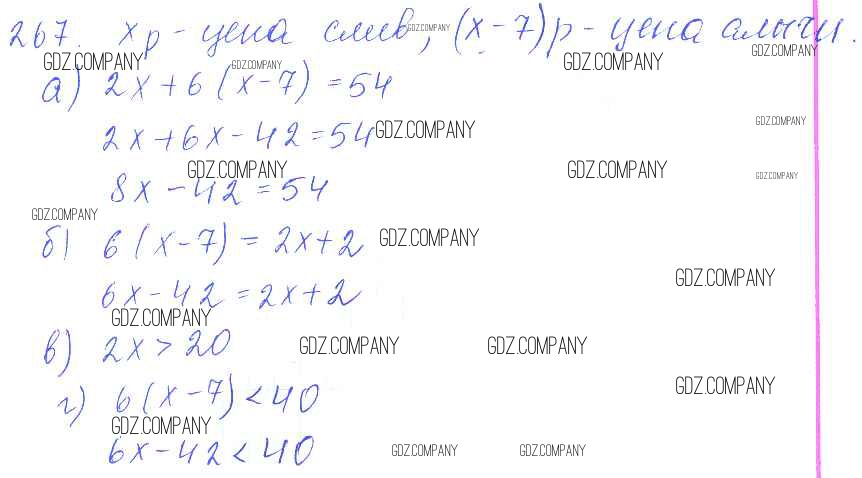 267. х р - цена слив, GDZ.COMPANY (х - 7) р - цена алычи.
GDZ.COMPANY GDZ.COMPANY GDZ.COMPANY GDZ.COMPANY
а) 2х + 6 (х - 7) = 54
GDZ.COMPANY
2х + 6х - 42 = 54 GDZ.COMPANY
GDZ.COMPANY GDZ.COMPANY GDZ.COMPANY
8х - 42 = 54
GDZ.COMPANY
б) 6 (х - 7) = 2х + 2 GDZ.COMPANY
GDZ.COMPANY
6х - 42 = 2х + 2
GDZ.COMPANY
в) 2х > 20 GDZ.COMPANY GDZ.COMPANY
GDZ.COMPANY
г) 6 (х - 7) < 40
GDZ.COMPANY
6х - 42 < 40 GDZ.COMPANY GDZ.COMPANY